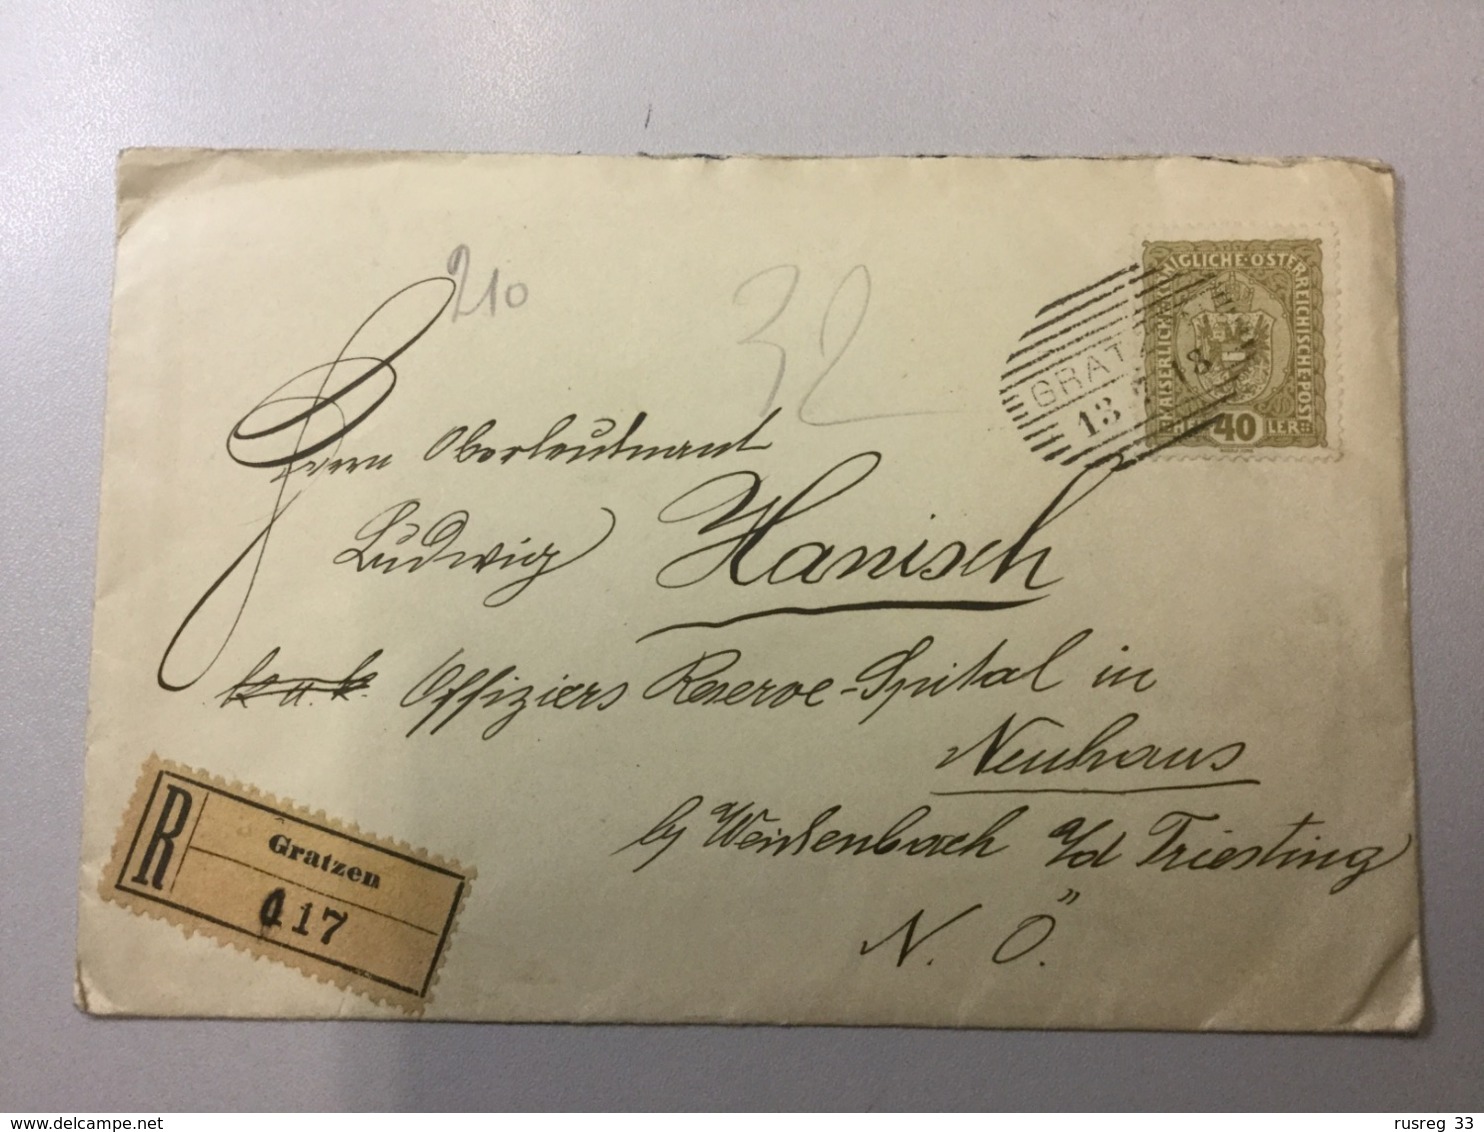 210
32
KAISERLICHE KÖNIGLICHE ÖSTERREICHISCHE POST
40
GRATZEN
13 7 18
Herrn Oberleutnant
Ludwig Hanisch
k. u. k. Offiziers Reserve-Spital in
Neuhaus
by Weißenbach a/d Triesting
N. Ö.
R
Gratzen
417
delcampe.net
rusreg 33